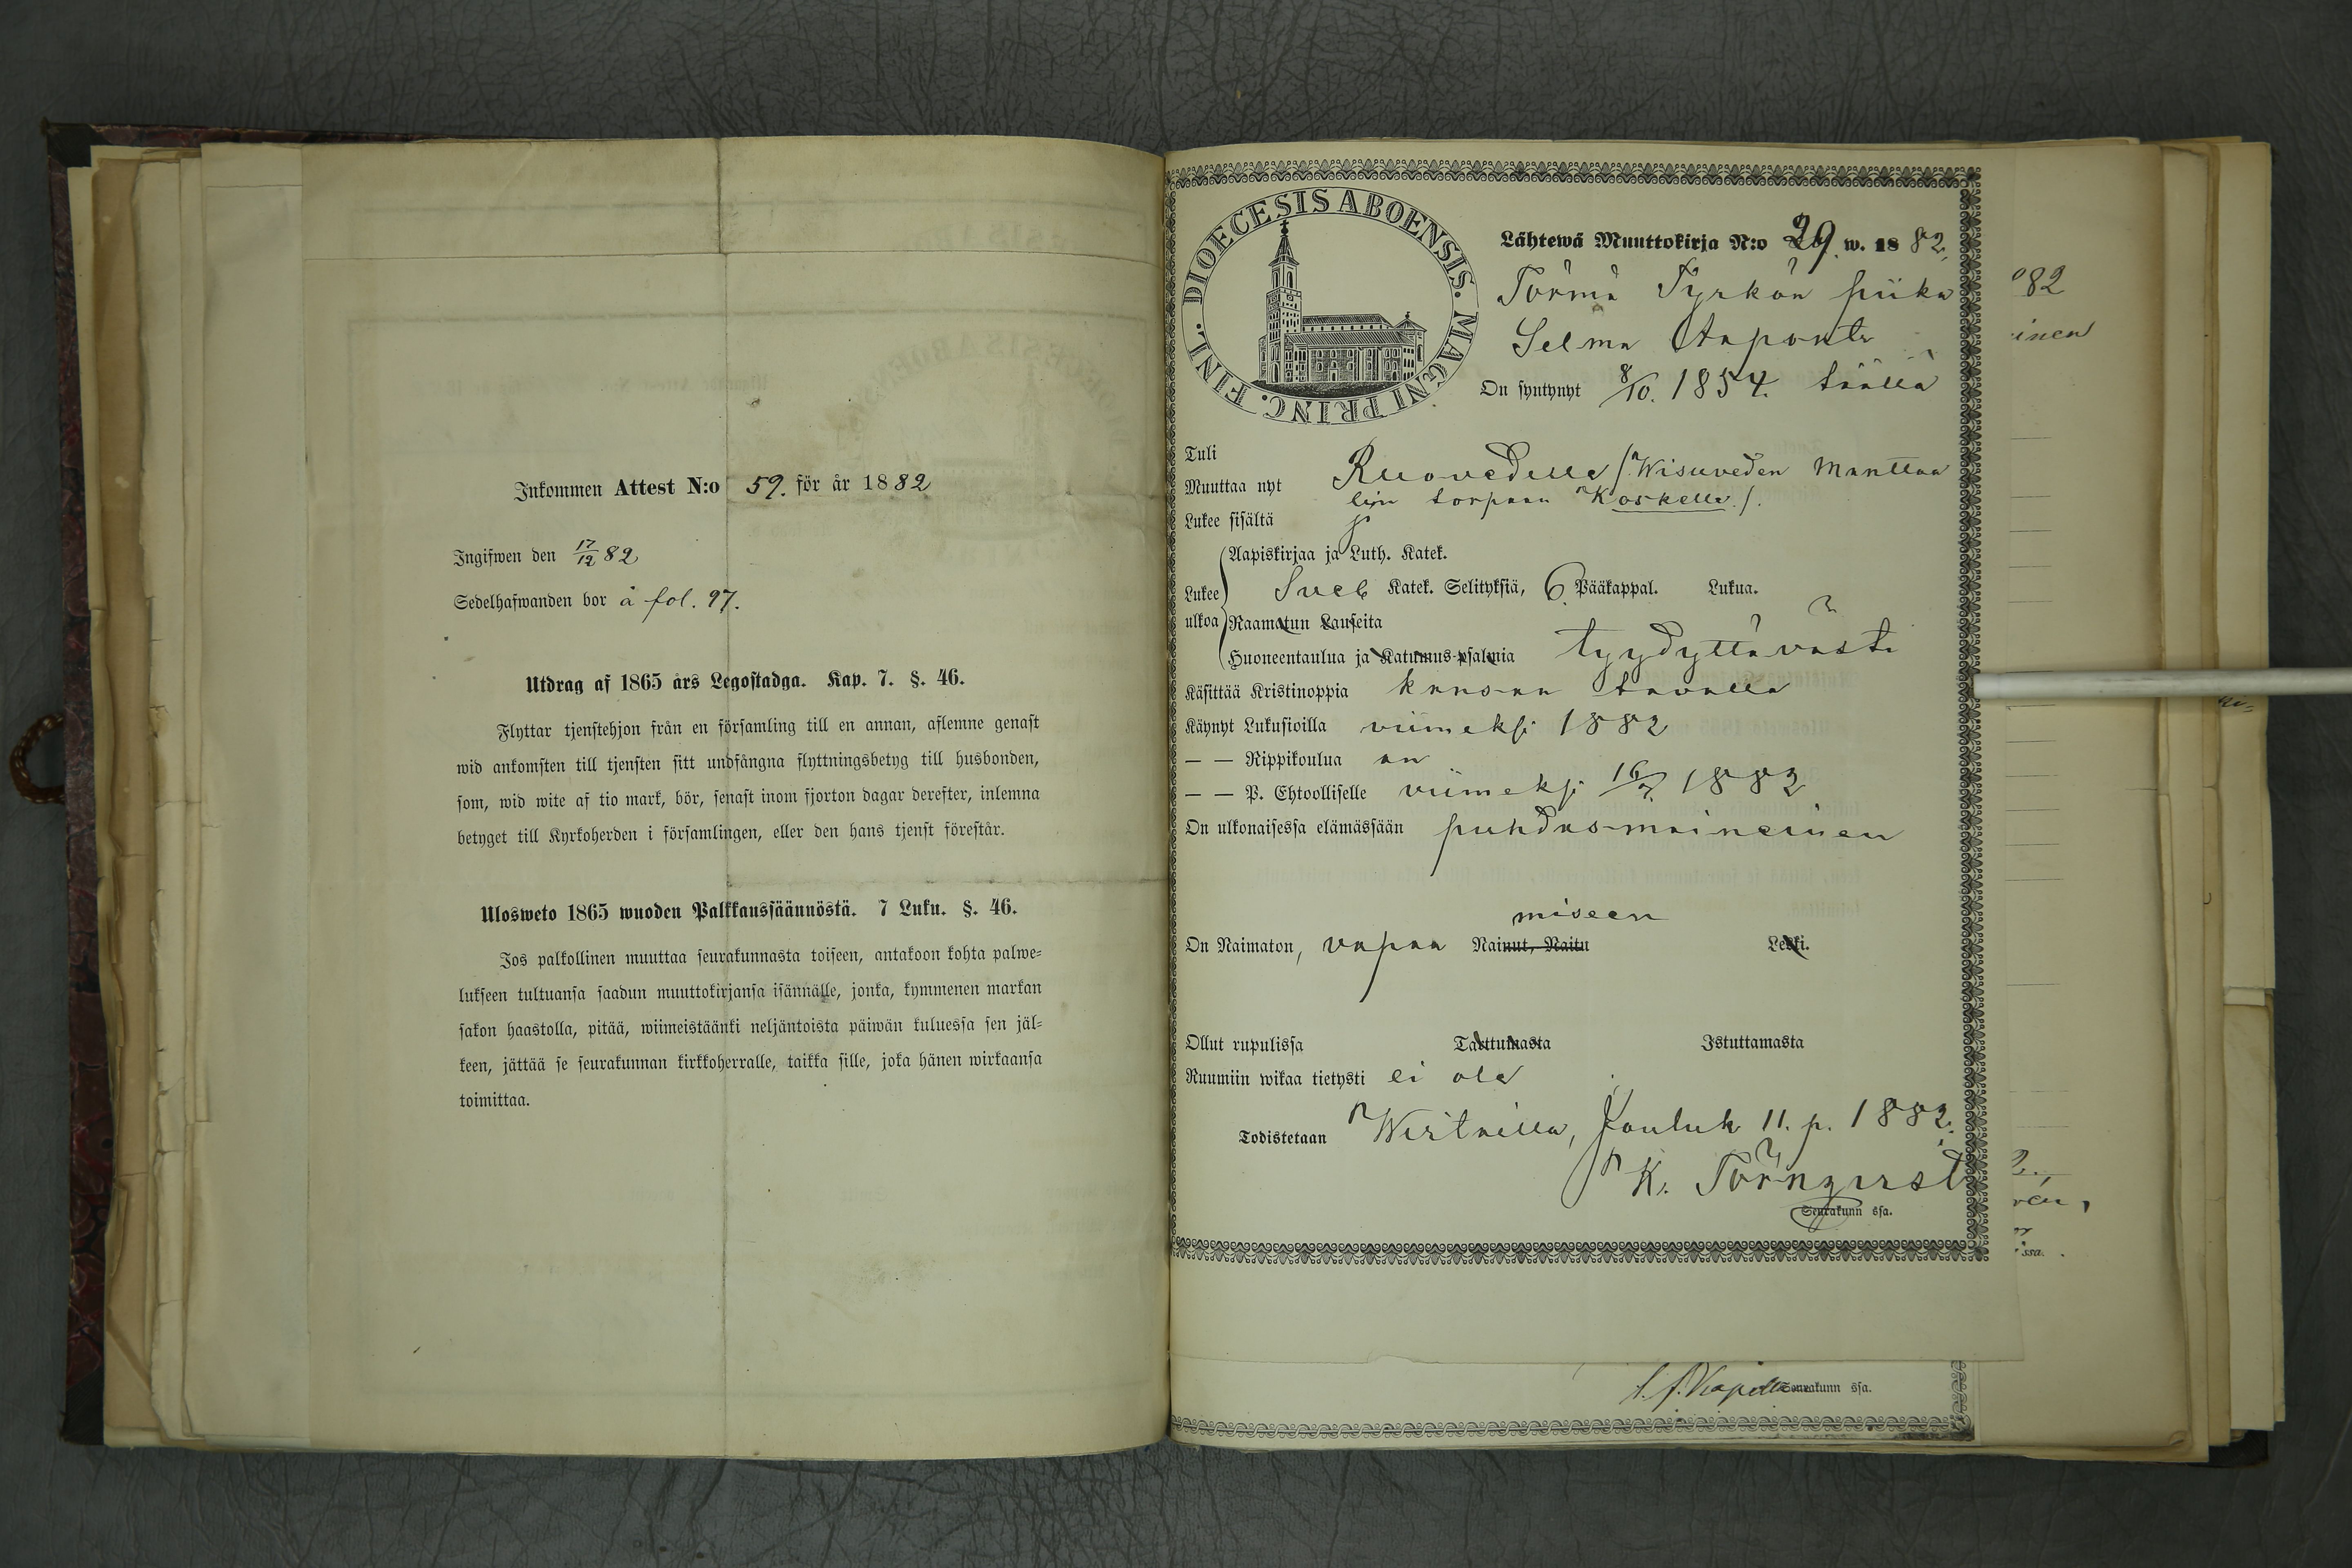 Inkommen Attest N:o 59. för år 1882
Ingifwen den 17/12 82
Sedelhafwanden bor å fol. 97.
Utdrag af 1865 års Legostadga. Kap. 7. §. 46.
Flyttar tjenstehjon från en församling till en annan, aflemne genast
wid ankomsten till tjensten sitt undfångna flyttningsbetyg till husbonden,
som, wid wite af tio mark, bör, senast inom fjorton dagar derefter, inlemna
betyget till Kyrkoherden i församlingen, eller den hans tjenst förestår.
Ulosweto 1865 wuoden Palkkaussäännöstä. 7 Luku. §. 46.
Jos palkollinen muuttaa seurakunnasta toiseen, antakoon kohta palwe-
lukseen tultuansa saadun muuttokirjansa isännälle, jonka, kymmenen markan
sakon haastolla, pitää, wiimeistäänki neljäntoista päiwän kuluessa sen jäl-
keen, jättää se seurakunnan kirkkoherralle, taikka sille, joka hänen wirkaansa
toimittaa.
DIOECESIS ABOENSIS. MAGNI PRINC. FINL.
Lähtewä Muuttokirja N:o 29. w. 1882.
Törmä Tyrkön piika
Selma Aaponta
On syntynyt 8/10. 1854. täällä
Tuli
Muuttaa nyt Ruovedelle /: Wisuveden Manttaa
lin torpaan Koskelle /.
Lukee sisältä
Aapiskirjaa ja Luth. Katek.
Lukee ulkoa Sveb Katek. Selityksiä, 6. Pääkappal. Lukua.
Raamatun Lauseita
Huoneentaulua ja Katumus-psalmia tyydyttävästi
Käsittää Kristinoppia kansan tavalla
Käynyt Lukusioilla viimeksi 1882
— — Rippikoulua on
— — P. Ehtoolliselle viimeksi 16/7. 1882
On ulkonaisessa elämässään puhdas-maineinen
miseen
On Naimaton, vapaa Nainut, Naitu Leski.
Ollut rupulissa Tarttumasta Istuttamasta
Ruumiin wikaa tietysti ei ole
Todistetaan Wirtailla, Jouluk 11. p. 1882.
K. Törnqvist
Seurakunn ssa.
Seurakunn ssa.
082
inen
ssa.